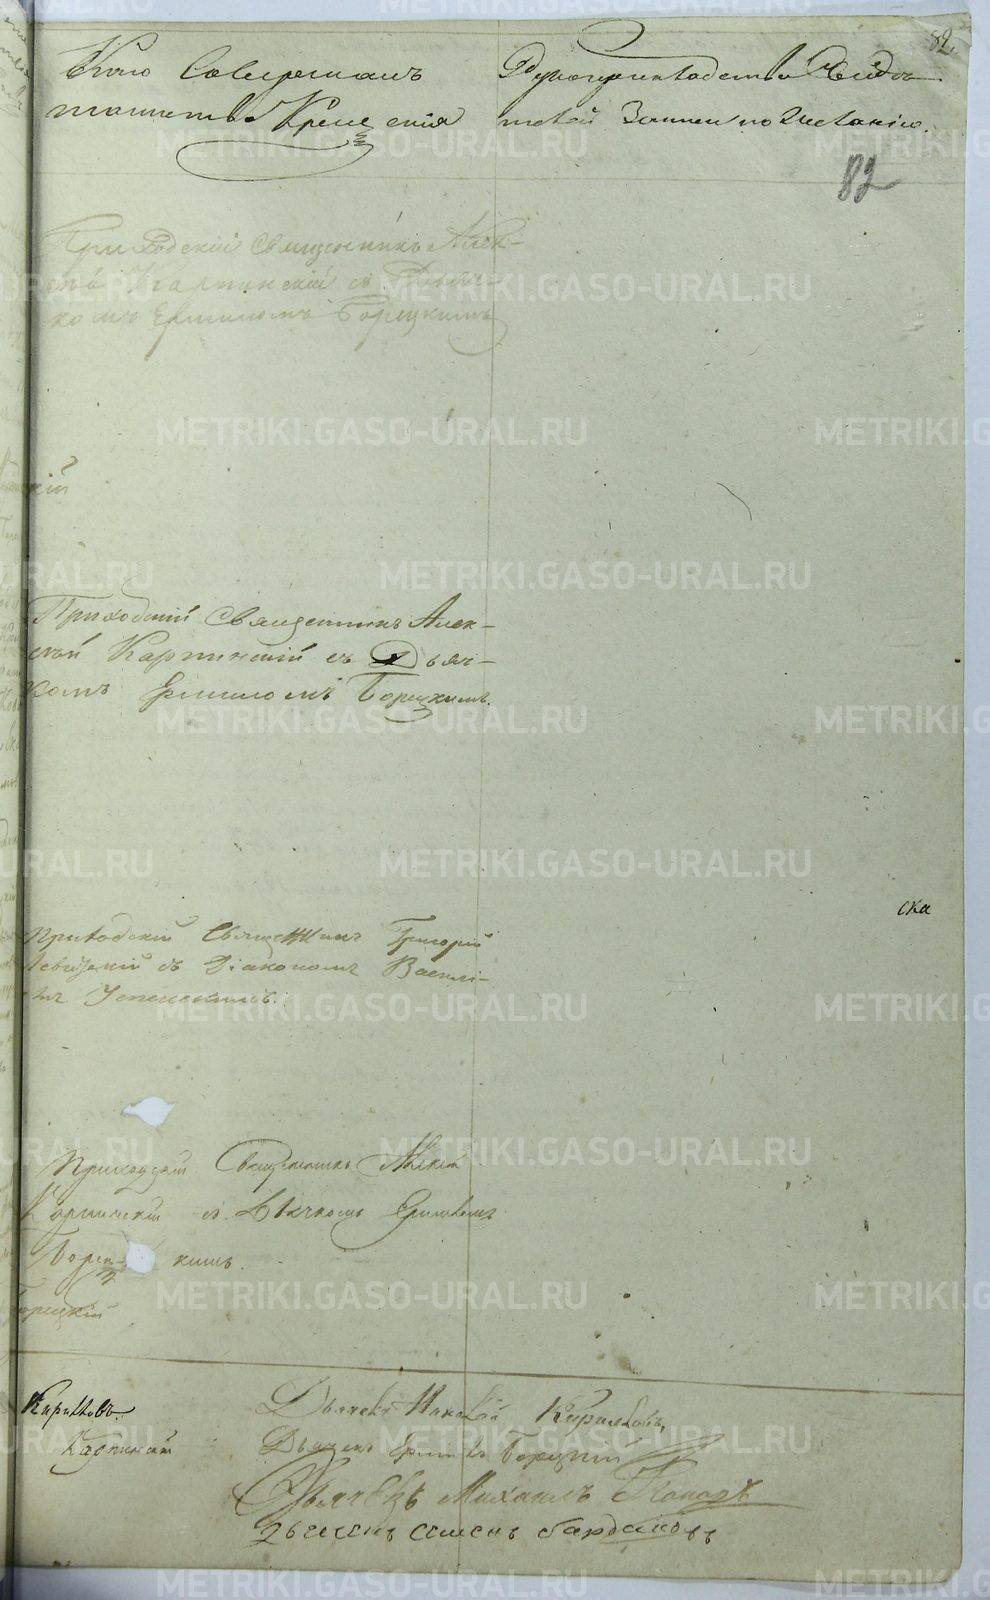 82
Кто Совершалъ
таинство Крещенія
Рукоприкладство Свидѣ
телей Записи по желанію.
82
Приходскій Священникъ Алек-
сѣй Карпинскій съ Дьяч-
комъ Ермиломъ Борецкимъ
кій
Приходскій Священникъ Алек-
сѣй Карпинскій съ Дьяч-
комъ Ермиломъ Борецкимъ.
ска
Приходскій Священникъ Григорій
Левитскій съ Діакономъ Василі-
емъ Успенскимъ.
Приходскій Священникъ Алексій
Карпинскій съ Дьячкомъ Ермиломъ
Борец- кимъ.
Борецкій
Кириловъ.
Карпинскій
Дьячекъ Николай Кириловъ,
Дьячекъ Ермилъ Борецкій
Дьячекъ Михаилъ Пономаревъ
METRIKI.GASO-URAL.RU